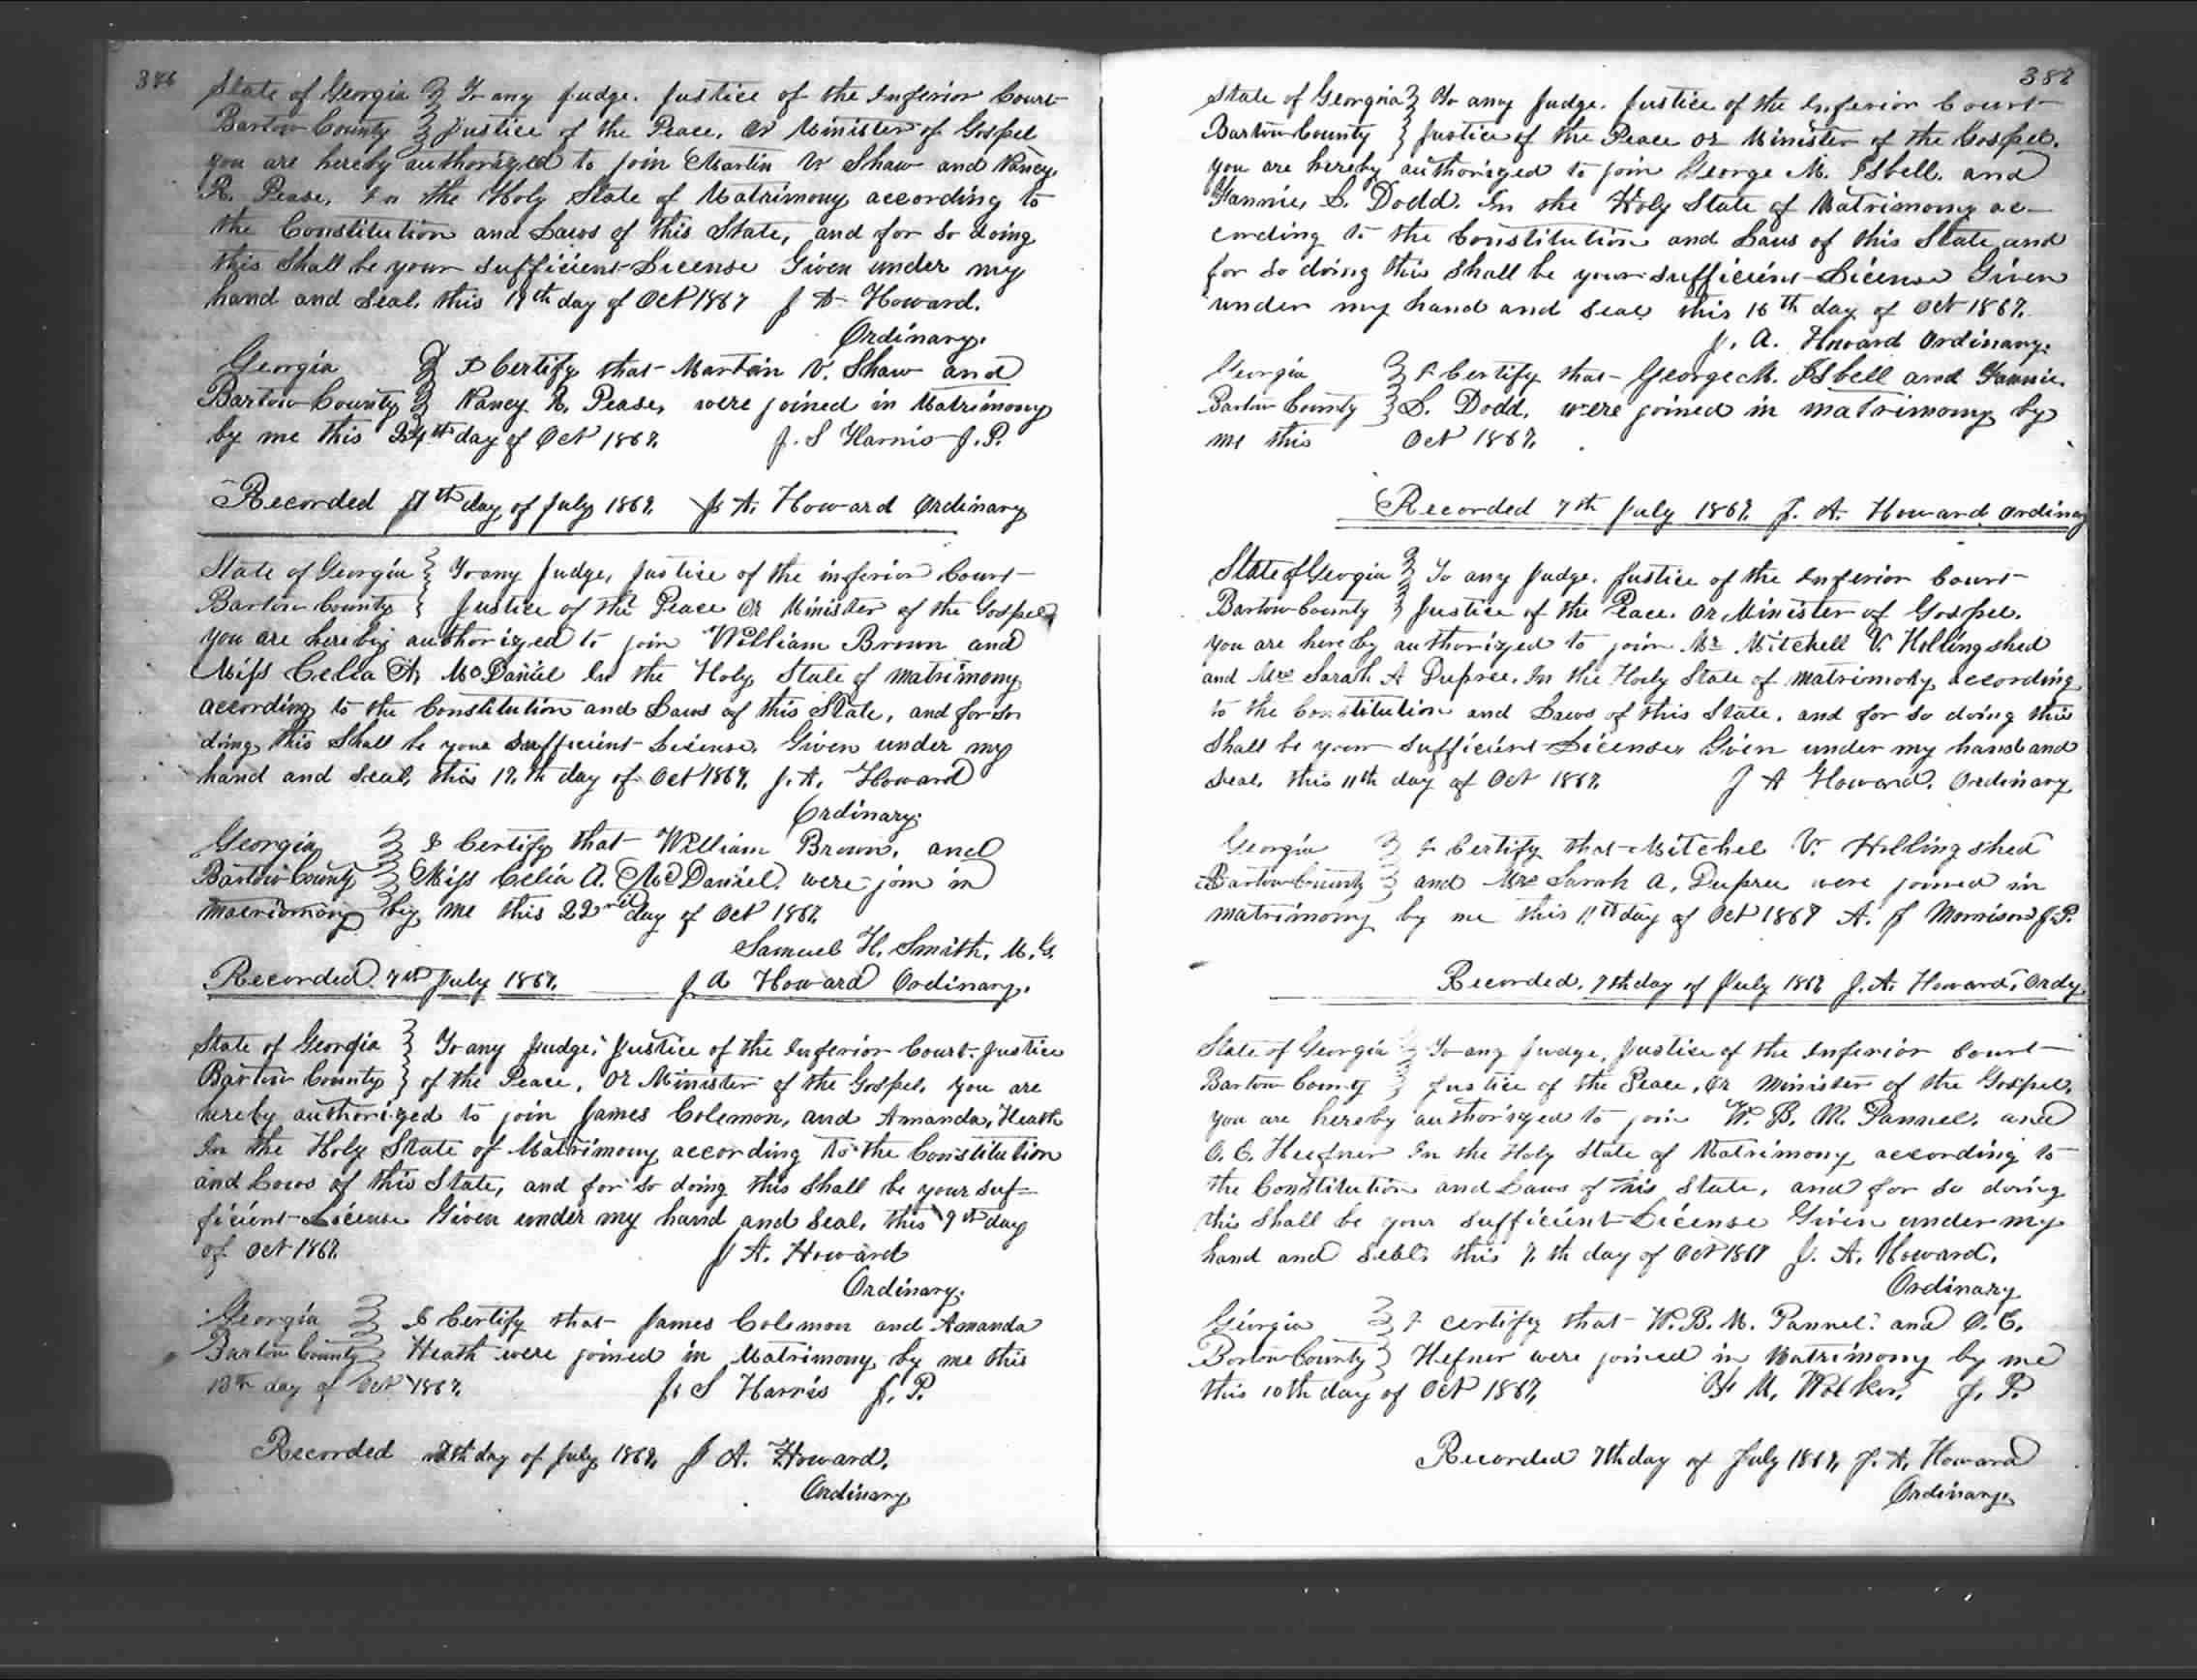 State of Georgia } To any Judge. Justice of the Inferior Court
Bartow County } Justice of the Peace, or Minister of Gospel
you are hereby authorized to join Martin V Shaw and Nancy
R. Pease, In the Holy State of Matrimony according to
the Constitution and Laws of this State, and for so doing
this Shall be your sufficient License Given under my
hand and Seal, this 19th day of Oct 1867 J A Howard.
Ordinary.
Georgia } I Certify that Martin V. Shaw and
Bartow County } Nancy R. Pease, were joined in Matrimony
by me this 24th day of Oct 1867. J. S Harris J. P.
Recorded 7th day of July 1867. J. A. Howard Ordinary
State of Georgia } To any Judge, Justice of the inferior Court
Bartow County } Justice of the Peace Or Minister of the Gospel
you are hereby authorized to join William Brown and
Miss Celia A. McDaniel In the Holy State of matrimony
according to the Constitution and Laws of this State, and for so
doing this Shall be your sufficient License. Given under my
hand and Seal, this 17th day of Oct 1867. J. A. Howard
Ordinary.
Georgia } I Certify that William Brown, and
Bartow County } Miss Celia A. McDaniel, were join in
matrimony by me this 22nd day of Oct 1867.
Samuel H. Smith, M. G.
Recorded 7th July 1867. J A Howard Ordinary.
State of Georgia } To any Judge, Justice of the Inferior Court. Justice
Bartow County } of the Peace, Or Minister of the Gospel, you are
hereby authorized to join James Colemon, and Amanda, Heath
In the Holy State of Matrimony according to the Constitution
and Laws of this State, and for so doing this Shall be your suf-
ficient License Given under my hand and Seal, this 9th day
of Oct 1867. J A. Howard
Ordinary.
Georgia } I Certify that James Colemon and Amanda
Bartow County } Heath were joined in Matrimony by me this
13th day of Oct 1867. J. S Harris J. P.
Recorded 7th day of July 1867, J A. Howard,
Ordinary
387
State of Georgia } To any Judge. Justice of the Inferior Court
Bartow County } Justice of the Peace or Minister of the Gospel.
you are hereby authorized to join George M. Isbell. and
Fannie, S. Dodd. In the Holy State of Matrimony ac-
cording to the Constitution and Laws of this State and
for so doing this Shall be your sufficient License Given
under my hand and Seal this 16th day of Oct 1867.
J. A. Howard Ordinary.
Georgia } I Certify that George M. Isbell and Fannie.
Bartow County } S. Dodd, were joined in matrimony by
me this Oct 1867.
Recorded 7th July 1867. J. A. Howard Ordinary
State of Georgia } To any Judge. Justice of the Inferior Court
Bartow County } Justice of the Peace. Or Minister of Gospel.
you are hereby authorized to join Mr Mitchell V. Hollingshed
and Mrs Sarah A Dupree. In the Holy State of matrimony according
to the Constitution and Laws of this State, and for so doing this
Shall be your sufficient License Given under my hand and
Seal. this 11th day of Oct 1867. J A Howard, Ordinary
Georgia } I Certify that Mitchel V. Hollingshed
Bartow County } and Mrs Sarah A, Dupree were joined in
matrimony by me this 11th day of Oct 1867 A. J Morrison J.P.
Recorded. 7th day of July 1867 J. A. Howard, Ordy.
State of Georgia } To any Judge, Justice of the Inferior Court
Bartow County } Justice of the Peace, Or Minister of the Gospel,
you are hereby authorized to join W. B. M. Pannel, and
O. C. Heefner In the Holy State of Matrimony according to
the Constitution and Laws of this State, and for so doing
this Shall be your sufficient License Given under my
hand and Seal this 7th day of Oct 1867 J. A. Howard,
Ordinary
Georgia } I certify that W. B. M. Pannel. and O. C.
Bartow County } Hefner were joined in Matrimony by me
this 10th day of Oct 1867, M, J. P.
Recorded 7th day of July 1867, J. A. Howard
Ordinary.